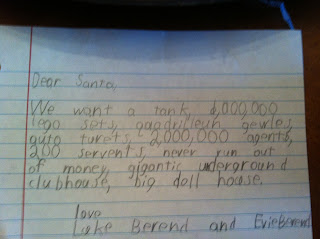 Dear Santa,
We want a tank, 6,000,000
lego sets, quadrilleun gewles,
auto turets, 2,000,000 agents,
200 servents, never run out
of money, gigantic underground
clubhouse, big doll house.
love
Luke Berend and Evie Berend